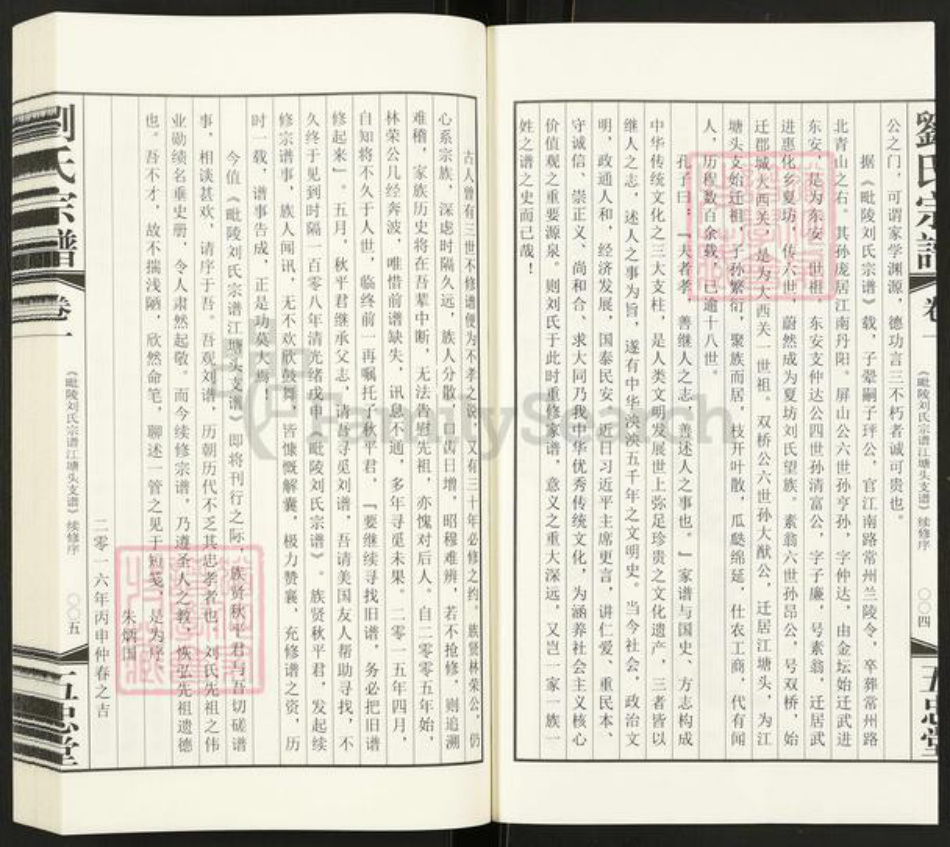 公之门，可谓家学渊源，德功言三不朽者诚可贵也。
据《毗陵刘氏宗谱》载，子翚嗣子玶公，官江南路常州兰陵令，卒葬常州路
北青山之右。其孙庞居江南丹阳。屏山公六世孙亨孙，字仲达，由金坛始迁武进
东安，是为东安一世祖，东安支仲达公四世孙清富公，字子廉，号素翁，迁居武
进惠化乡夏坊，传六世，蔚然成为夏坊刘氏望族。素翁六世孙昂公，号双桥，始
迁郡城大西关，是为大西关一世祖。双桥公六世孙大猷公，迁居江塘头，为江
塘头支始迁祖，子孙繁衍，聚族而居，枝开叶散，瓜瓞绵延，仕农工商，代有闻
人，历程数百余载，已逾十八世。
孔子曰：『夫孝者，善继人之志，善述人之事也。』家谱与国史、方志构成
中华传统文化之三大支柱，是人类文明发展世上弥足珍贵之文化遗产，三者皆以
继人之志，述人之事为旨，遂有中华泱泱五千年之文明史。当今社会，政治文
明，政通人和，经济发展，国泰民安，近日习近平主席更言，讲仁爱、重民本、
守诚信、崇正义、尚和合、求大同乃我中华优秀传统文化，为涵养社会主义核心
价值观之重要源泉。则刘氏于此时重修家谱，意义之重大深远，又岂一家一族一
姓之谱之史而已哉！
劉氏宗譜
卷一
《毗陵刘氏宗谱江塘头支谱》续修序
〇〇四
五忠堂
古人曾有三世不修谱便为不孝之说，又有三十年必修之约，族贤林荣公，仍
心系宗族，深虑时隔久远，族人分散，口齿日增，昭穆难辨，若不抢修，则追溯
难稽，家族历史将在吾辈中断，无法告慰先祖，亦愧对后人。自二零零五年始，
林荣公几经奔波，唯惜前谱缺失，讯息不通，多年寻觅未果。二零一五年四月，
自知将不久于人世，临终前一再嘱托了秋平君，『要继续寻找旧谱，务必把旧谱
修起来』。五月，秋平君继承父志，请吾寻觅刘谱，吾请美国友人帮助寻找，不
久终于见到时隔一百零八年清光绪戊申《毗陵刘氏宗谱》。族贤秋平君，发起续
修宗谱事，族人闻讯，无不欢欣鼓舞，皆慷慨解囊，极力赞襄，充修谱之资，历
时一载，谱事告成，正是功莫大焉！
今值《毗陵刘氏宗谱江塘头支谱》即将刊行之际，族贤秋平君与吾切磋谱
事，相谈甚欢，请序于吾。吾观刘谱，历朝历代不乏其忠孝者也，刘氏先祖之伟
业勋绩名垂史册，令人肃然起敬。而今续修宗谱，乃遵圣人之教，恢弘先祖遗德
也。吾不才，故不揣浅陋，欣然命笔，聊述一管之见于短笺，是为序。
朱炳国
二零一六年丙申仲春之吉
劉氏宗譜
卷一
《毗陵刘氏宗谱江塘头支谱》续修序
〇〇五
五忠堂
FamilySearch